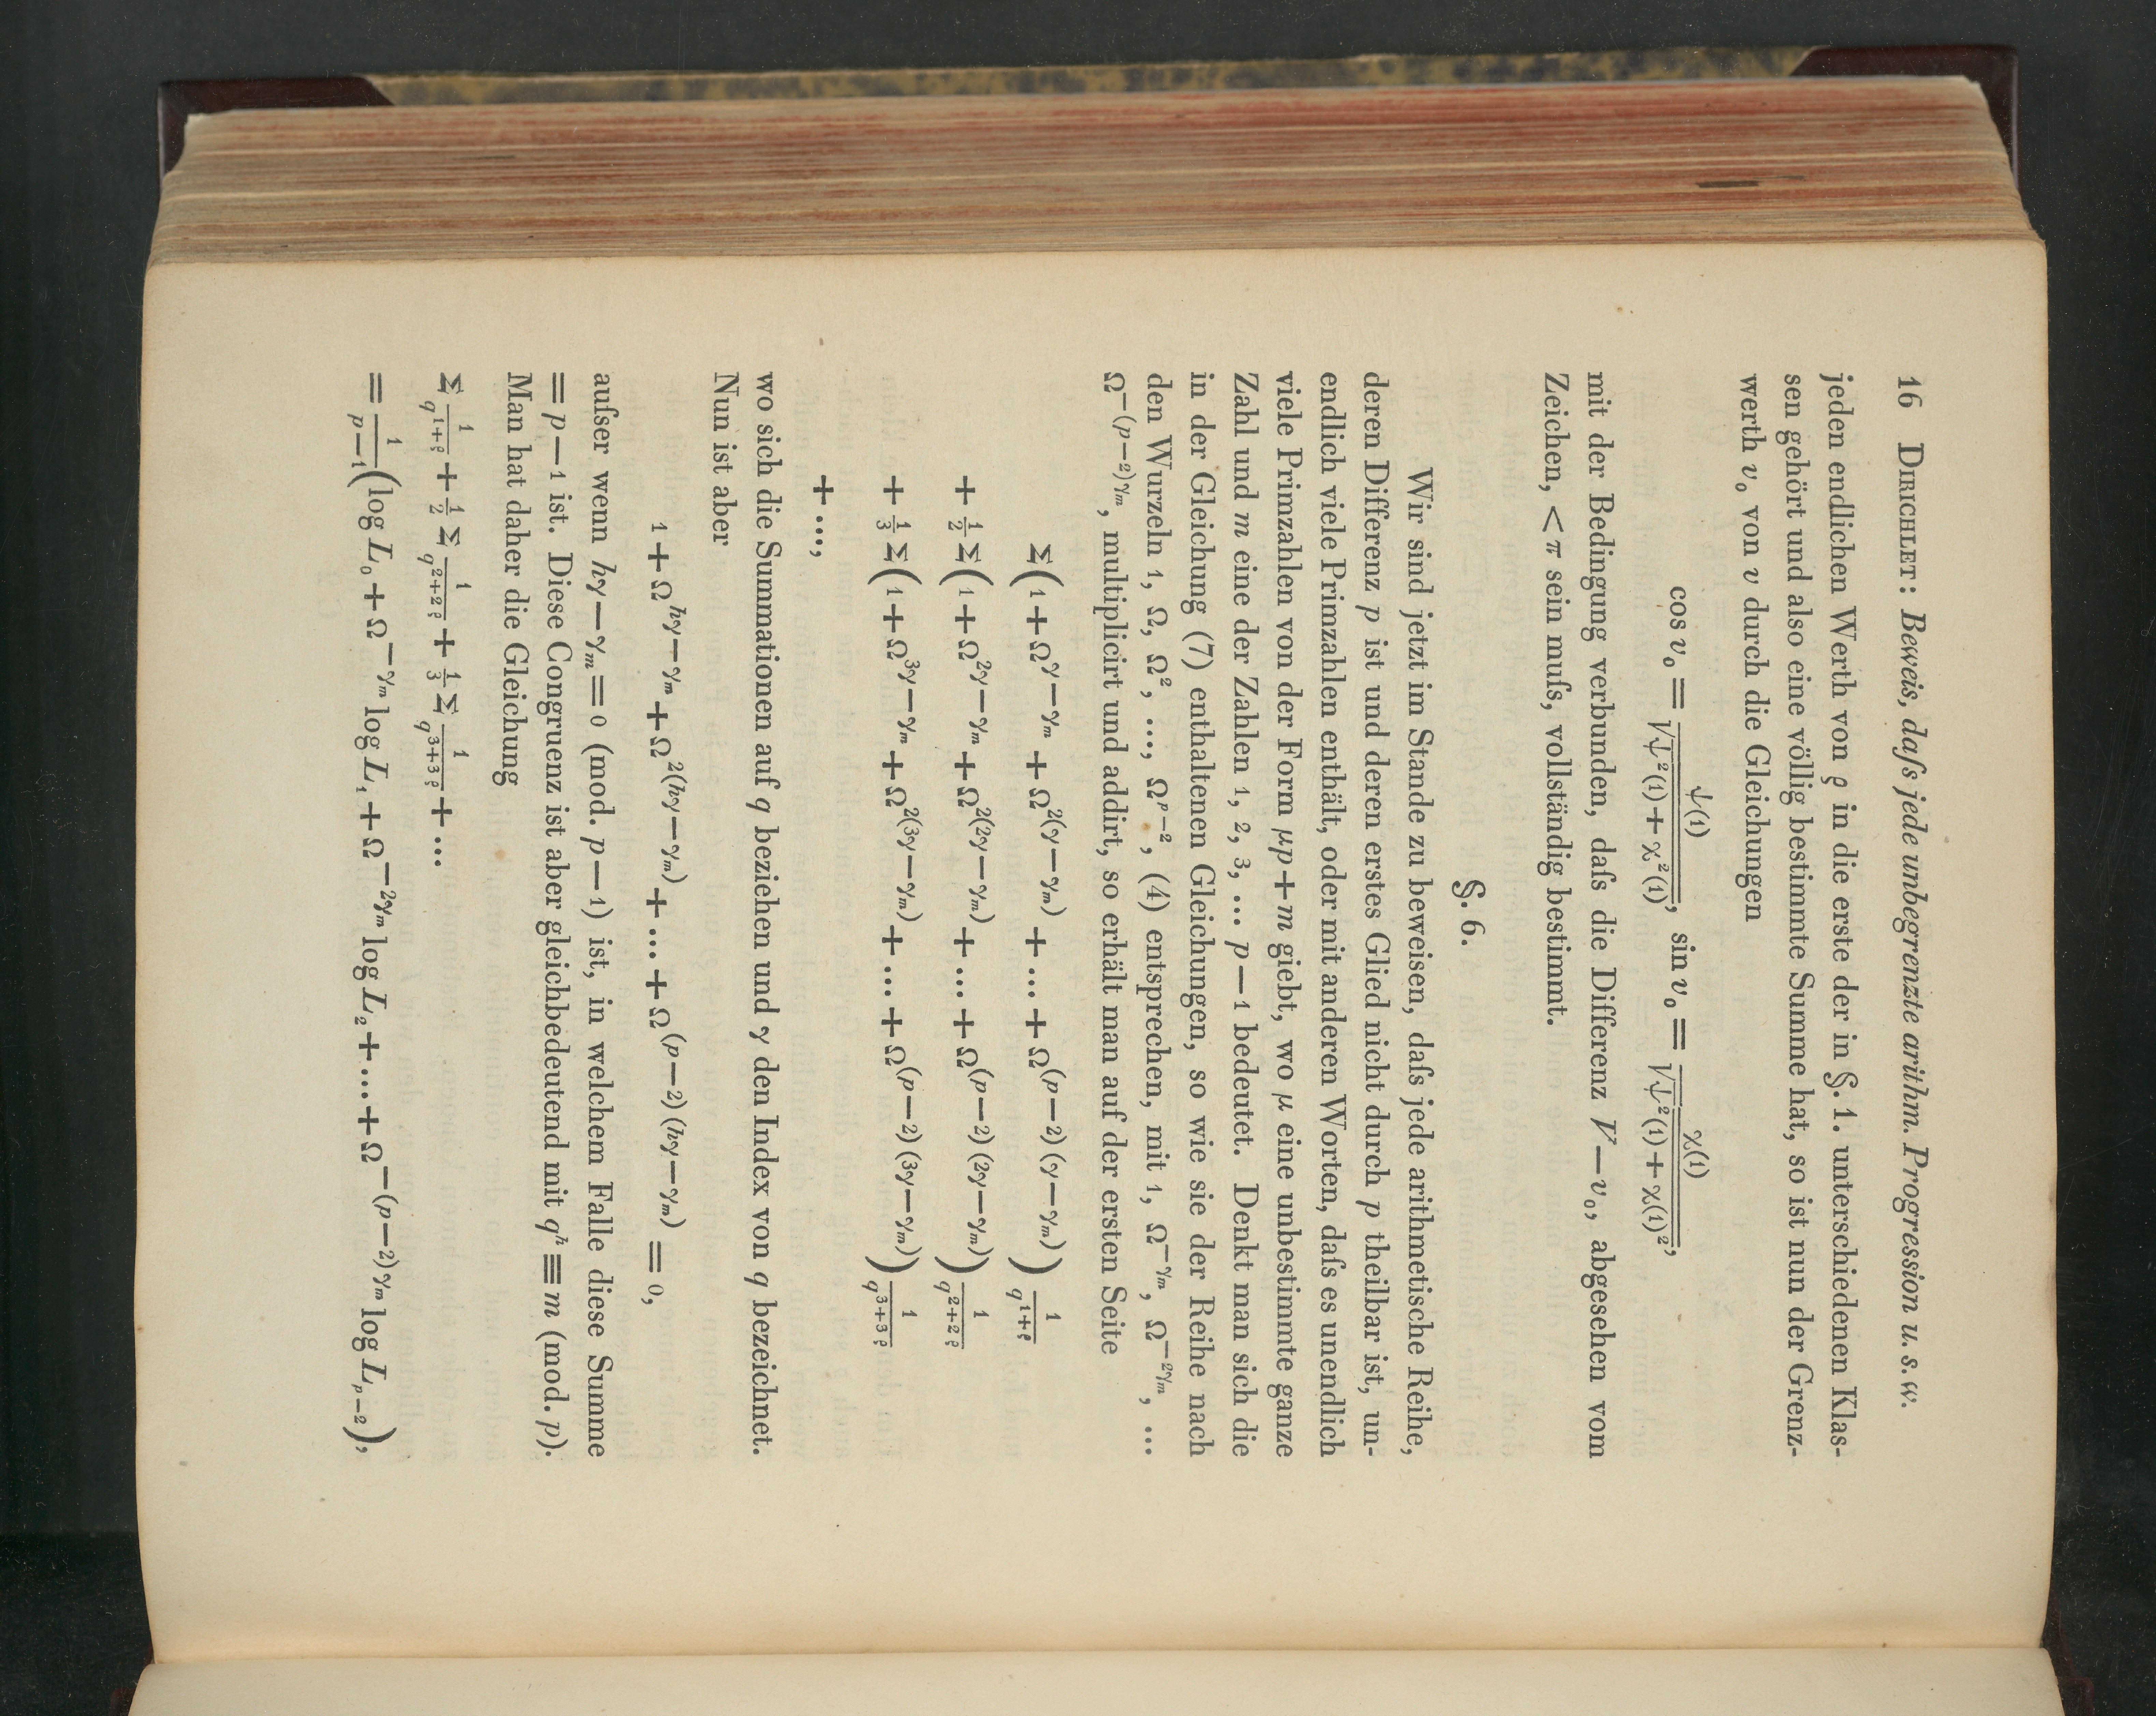 16 DIRICHLET: Beweis, daſs jede unbegrenzte arithm. Progression u. s. w.
jeden endlichen Werth von ϱ in die erste der in §. 1. unterschiedenen Klas-
sen gehört und also eine völlig bestimmte Summe hat, so ist nun der Grenz-
werth v₀ von v durch die Gleichungen
cos v₀ = ψ(1)/√(ψ²(1) + χ²(1)), sin v₀ = χ(1)/√(ψ²(1) + χ(1)²),
mit der Bedingung verbunden, daſs die Differenz V — v₀, abgesehen vom
Zeichen, < π sein muſs, vollständig bestimmt.
§. 6.
Wir sind jetzt im Stande zu beweisen, daſs jede arithmetische Reihe,
deren Differenz p ist und deren erstes Glied nicht durch p theilbar ist, un-
endlich viele Primzahlen enthält, oder mit anderen Worten, daſs es unendlich
viele Primzahlen von der Form μp + m giebt, wo μ eine unbestimmte ganze
Zahl und m eine der Zahlen 1, 2, 3, ... p — 1 bedeutet. Denkt man sich die
in der Gleichung (7) enthaltenen Gleichungen, so wie sie der Reihe nach
den Wurzeln 1, Ω, Ω², ..., Ω^{p—2}, (4) entsprechen, mit 1, Ω^{—γₘ}, Ω^{—2γₘ}, ...
Ω^{—(p—2)γₘ}, multiplicirt und addirt, so erhält man auf der ersten Seite
Σ(1 + Ω^{γ—γₘ} + Ω^{2(γ—γₘ)} + ... + Ω^{(p—2)(γ—γₘ)}) 1/q^{1+ϱ}
+ ½ Σ(1 + Ω^{2γ—γₘ} + Ω^{2(2γ—γₘ)} + ... + Ω^{(p—2)(2γ—γₘ)}) 1/q^{2+2ϱ}
+ ⅓ Σ(1 + Ω^{3γ—γₘ} + Ω^{2(3γ—γₘ)} + ... + Ω^{(p—2)(3γ—γₘ)}) 1/q^{3+3ϱ}
+ ...,
wo sich die Summationen auf q beziehen und γ den Index von q bezeichnet.
Nun ist aber
1 + Ω^{hγ—γₘ} + Ω^{2(hγ—γₘ)} + ... + Ω^{(p—2)(hγ—γₘ)} = 0,
auſser wenn hγ — γₘ = 0 (mod. p — 1) ist, in welchem Falle diese Summe
= p — 1 ist. Diese Congruenz ist aber gleichbedeutend mit qʰ ≡ m (mod. p).
Man hat daher die Gleichung
Σ 1/q^{1+ϱ} + ½ Σ 1/q^{2+2ϱ} + ⅓ Σ 1/q^{3+3ϱ} + ...
= 1/(p—1) (log L₀ + Ω^{—γₘ} log L₁ + Ω^{—2γₘ} log L₂ + ... + Ω^{—(p—2)γₘ} log L_{p—2}),